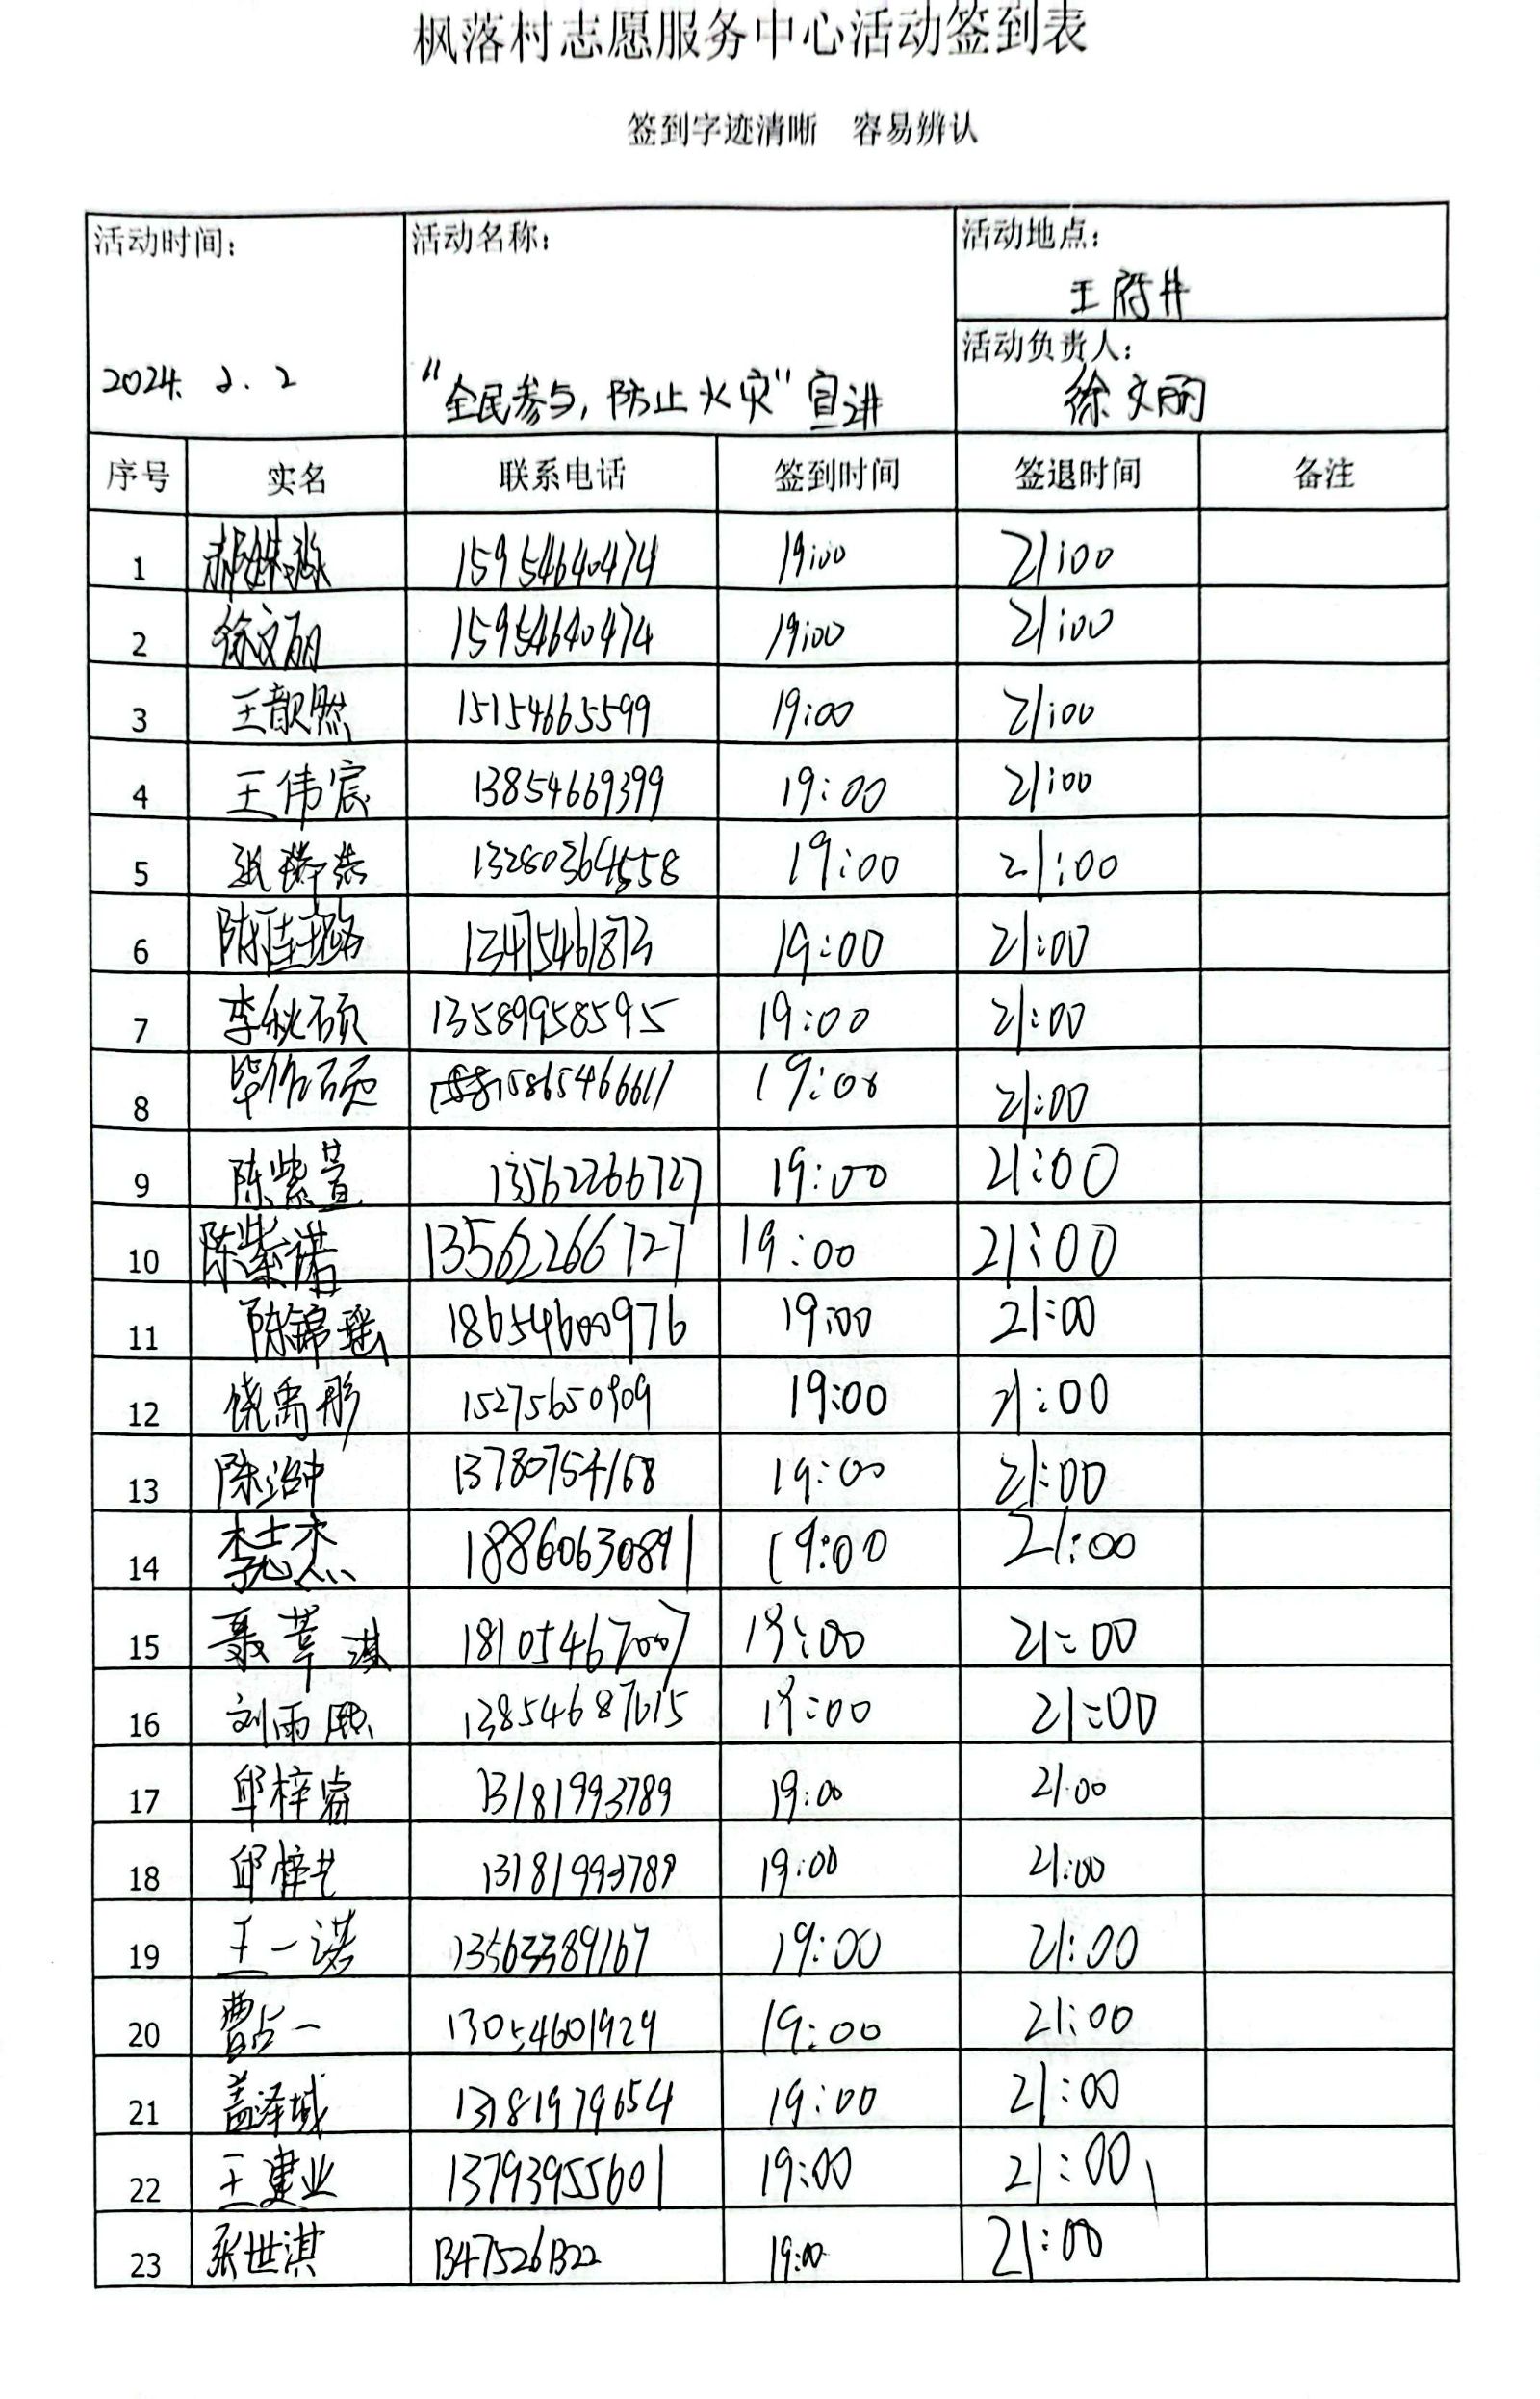 枫落村志愿服务中心活动签到表
签到字迹清晰 容易辨认
活动时间： 活动名称： 活动地点：
王府井
活动负责人：
2024. 2. 2 “全民参与，防止火灾”宣讲 徐文丽
序号 实名 联系电话 签到时间 签退时间 备注
1 15954640474 19:00 21:00
2 徐文丽 15954640474 19:00 21:00
3 王歆然 15154665599 19:00 21:00
4 王伟宸 13854669399 19:00 21:00
5 13280364558 19:00 21:00
6 陈佳璐 13475461873 19:00 21:00
7 李秋硕 13589958595 19:00 21:00
8 15865466611 19:00 21:00
9 陈紫萱 13562266727 19:00 21:00
10 陈紫诺 13562266727 19:00 21:00
11 陈锦瑶 18654600976 19:00 21:00
12 饶禹彤 15275650909 19:00 21:00
13 13780754168 19:00 21:00
14 18860630891 19:00 21:00
15 18105467007 19:00 21:00
16 刘雨熙 13854687615 19:00 21:00
17 邱梓睿 13181993789 19:00 21:00
18 邱梓艺 13181993789 19:00 21:00
19 王一诺 13563389167 19:00 21:00
20 13054601929 19:00 21:00
21 盖泽城 13181979654 19:00 21:00
22 王建业 13793955601 19:00 21:00
23 张世淇 13475261322 19:00 21:00